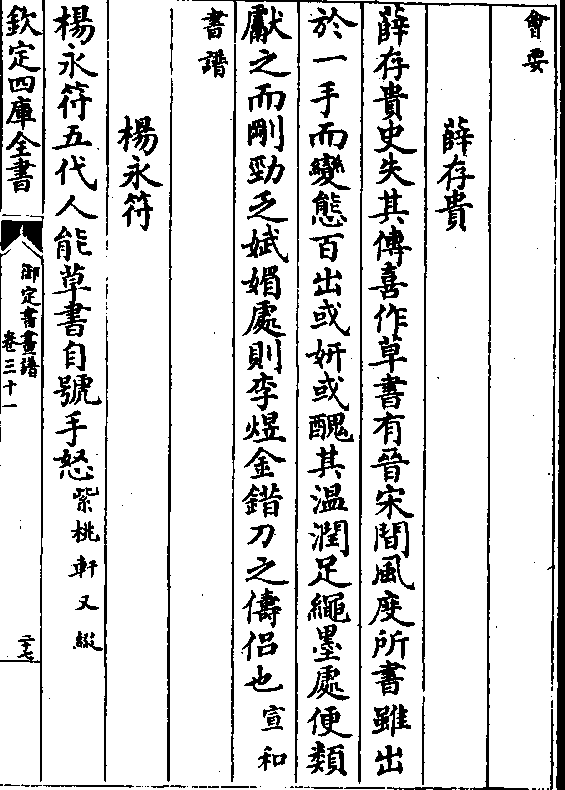 會要
薛存貴
薛存貴史失其傳喜作草書有晉宋閒風度所書雖出
於一手而變態百出或妍或醜其溫潤足繩墨處便類
獻之而剛勁乏娬媚處則李煜金錯刀之儔侣也宣和
書譜
楊永符
楊永符五代人能草書自號手怒紫桃軒又綴
欽定四庫全書
御定書畫譜
卷三十一
二十七